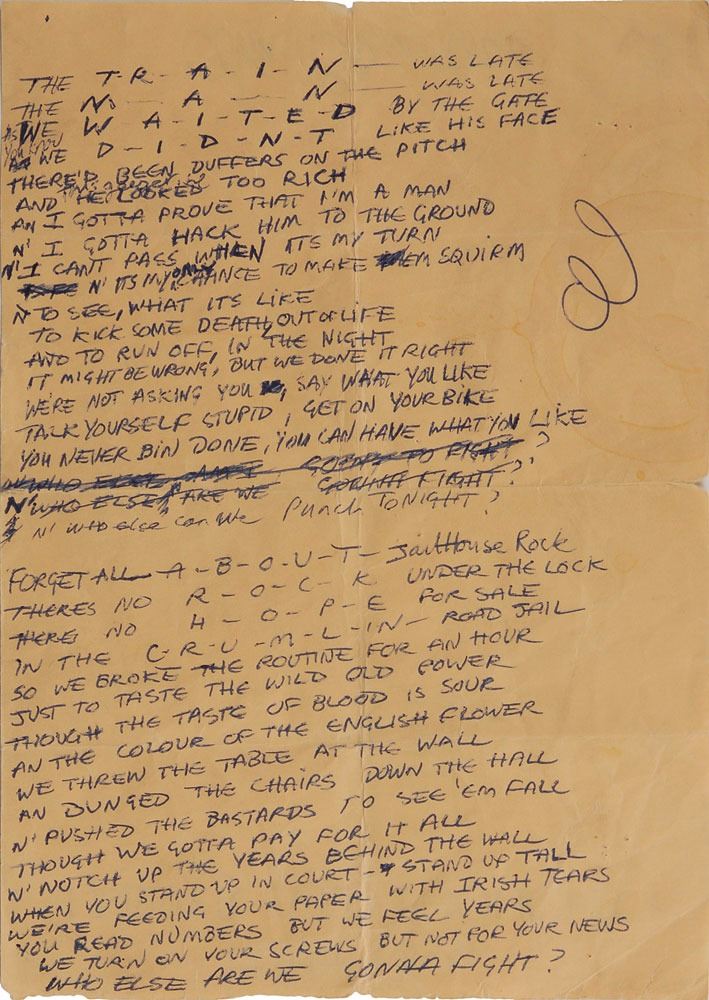 THE T-R-A-I-N — WAS LATE
THE M-A-N — WAS LATE
AS WE W-A-I-T-E-D BY THE GATE
WE D-I-D-N-T LIKE HIS FACE
THERE'D BEEN DUFFERS ON THE PITCH
AND HE LOOKED TOO RICH
AN I GOTTA PROVE THAT I'M A MAN
N' I GOTTA HACK HIM TO THE GROUND
N' I CANT PASS WHEN ITS MY TURN
N' ITS MY ONLY CHANCE TO MAKE EM SQUIRM
N TO SEE, WHAT ITS LIKE
TO KICK SOME DEATH, OUT OF LIFE
AND TO RUN OFF, IN THE NIGHT
IT MIGHT BE WRONG, BUT WE DONE IT RIGHT
WE'RE NOT ASKING YOU, SAY WHAT YOU LIKE
TALK YOURSELF STUPID, GET ON YOUR BIKE
YOU NEVER BIN DONE, YOU CAN HAVE WHAT YOU LIKE
WHO ELSE GOTTA TO FIGHT?
N' WHO ELSE, ARE WE GONNA FIGHT?
N' who else can we Punch TONIGHT?
FORGET ALL A-B-O-U-T- JailHouse Rock
THERES NO R-O-C-K UNDER THE LOCK
THERES NO H-O-P-E FOR SALE
IN THE C-R-U-M-L-IN- ROAD JAIL
SO WE BROKE THE ROUTINE FOR AN HOUR
JUST TO TASTE THE WILD OLD POWER
THOUGH THE TASTE OF BLOOD IS SOUR
AN THE COLOUR OF THE ENGLISH FLOWER
WE THREW THE TABLE AT THE WALL
AN BUNGED THE CHAIRS DOWN THE HALL
N' PUSHED THE BASTARDS TO SEE 'EM FALL
THOUGH WE GOTTA PAY FOR IT ALL
N' NOTCH UP THE YEARS BEHIND THE WALL
WHEN YOU STAND UP IN COURT - STAND UP TALL
WE'RE FEEDING YOUR PAPER WITH IRISH TEARS
YOU READ NUMBERS BUT WE FEEL YEARS
WE TURN ON YOUR SCREWS BUT NOT FOR YOUR NEWS
WHO ELSE ARE WE GONNA FIGHT?